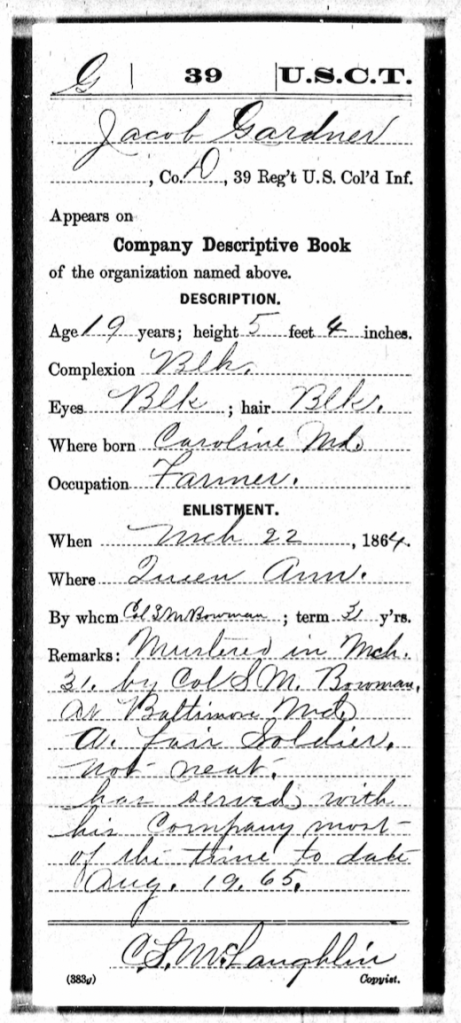 G | 39 | U.S.C.T.
Jacob Gardner
, Co. D, 39 Reg't U. S. Col'd Inf.
Appears on
Company Descriptive Book
of the organization named above.
DESCRIPTION.
Age 19 years; height 5 feet 4 inches.
Complexion Blk.
Eyes Blk ; hair Blk.
Where born Caroline Md.
Occupation Farmer.
ENLISTMENT.
When Mch 22, 1864.
Where Queen Ann.
By whom Col S M Bowman ; term 3 y'rs.
Remarks: Mustered in Mch.
31. by Col S. M. Bowman,
at Baltimore Md.
A. fair Soldier.
not neat.
has served with
his Company most
of the time to date
Aug. 19. 65.
C. S. McLaughlin
(383g) Copyist.